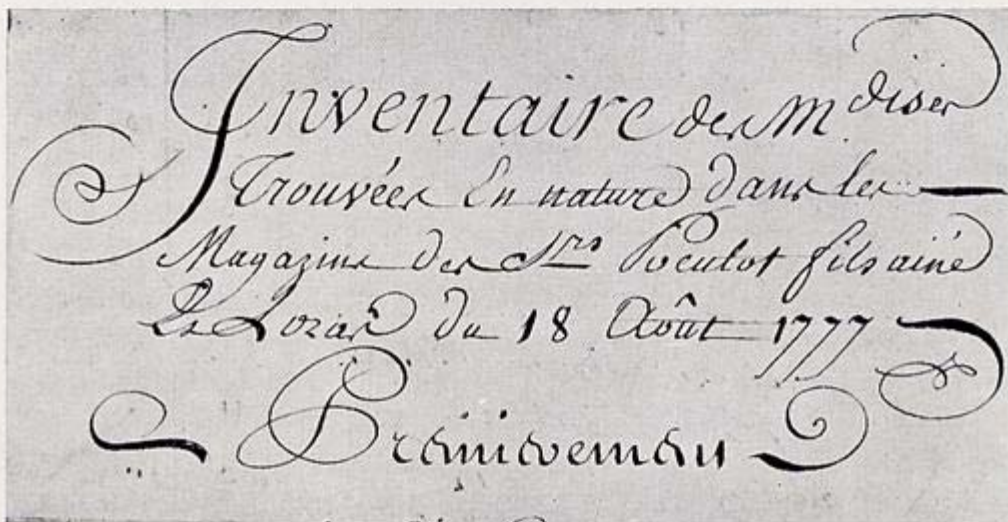 Inventaire des Mdises
Trouvées En nature dans les
Magazins des Srs Poculot fils ainé
& Lozat du 18 Août 1777
Premierement